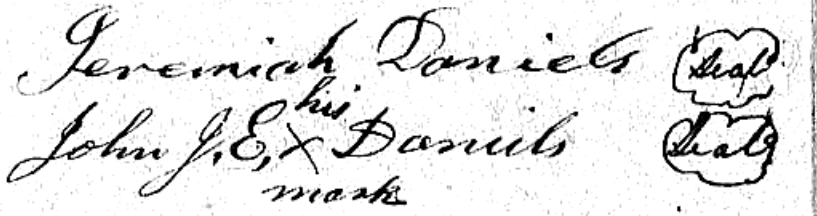 Jeremiah Daniels Seal
his
John J. E. X Daniels Seal
mark